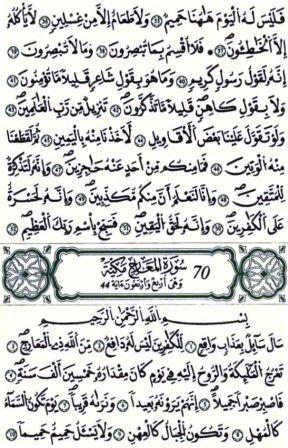 فَلَيْسَ لَهُ الْيَوْمَ هَهُنَا حَمِيمٌ ۝٣٥ وَلَا طَعَامٌ إِلَّا مِنْ غِسْلِينٍ ۝٣٦ لَا يَأْكُلُهُ
إِلَّا الْخَاطِئُونَ ۝٣٧ فَلَا أُقْسِمُ بِمَا تُبْصِرُونَ ۝٣٨ وَمَا لَا تُبْصِرُونَ ۝٣٩
إِنَّهُ لَقَوْلُ رَسُولٍ كَرِيمٍ ۝٤٠ وَمَا هُوَ بِقَوْلِ شَاعِرٍ قَلِيلًا مَّا تُؤْمِنُونَ ۝٤١
وَلَا بِقَوْلِ كَاهِنٍ قَلِيلًا مَّا تَذَكَّرُونَ ۝٤٢ تَنزِيلٌ مِّن رَّبِّ الْعَالَمِينَ ۝٤٣
وَلَوْ تَقَوَّلَ عَلَيْنَا بَعْضَ الْأَقَاوِيلِ ۝٤٤ لَأَخَذْنَا مِنْهُ بِالْيَمِينِ ۝٤٥ ثُمَّ لَقَطَعْنَا
مِنْهُ الْوَتِينَ ۝٤٦ فَمَا مِنكُم مِّنْ أَحَدٍ عَنْهُ حَاجِزِينَ ۝٤٧ وَإِنَّهُ لَتَذْكِرَةٌ
لِّلْمُتَّقِينَ ۝٤٨ وَإِنَّا لَنَعْلَمُ أَنَّ مِنكُم مُّكَذِّبِينَ ۝٤٩ وَإِنَّهُ لَحَسْرَةٌ
عَلَى الْكَافِرِينَ ۝٥٠ وَإِنَّهُ لَحَقُّ الْيَقِينِ ۝٥١ فَسَبِّحْ بِاسْمِ رَبِّكَ الْعَظِيمِ ۝٥٢
70 سُورَةُ الْمَعَارِجِ مَكِّيَّة
وَهِيَ أَرْبَعٌ وَأَرْبَعُونَ ءَايَة 44
بِسْمِ اللَّهِ الرَّحْمَٰنِ الرَّحِيمِ
سَأَلَ سَائِلٌ بِعَذَابٍ وَاقِعٍ ۝١ لِّلْكَافِرِينَ لَيْسَ لَهُ دَافِعٌ ۝٢ مِّنَ اللَّهِ ذِي الْمَعَارِجِ ۝٣
تَعْرُجُ الْمَلَائِكَةُ وَالرُّوحُ إِلَيْهِ فِي يَوْمٍ كَانَ مِقْدَارُهُ خَمْسِينَ أَلْفَ سَنَةٍ ۝٤
فَاصْبِرْ صَبْرًا جَمِيلًا ۝٥ إِنَّهُمْ يَرَوْنَهُ بَعِيدًا ۝٦ وَنَرَاهُ قَرِيبًا ۝٧ يَوْمَ تَكُونُ السَّمَاءُ
كَالْمُهْلِ ۝٨ وَتَكُونُ الْجِبَالُ كَالْعِهْنِ ۝٩ وَلَا يَسْأَلُ حَمِيمٌ حَمِيمًا ۝١٠